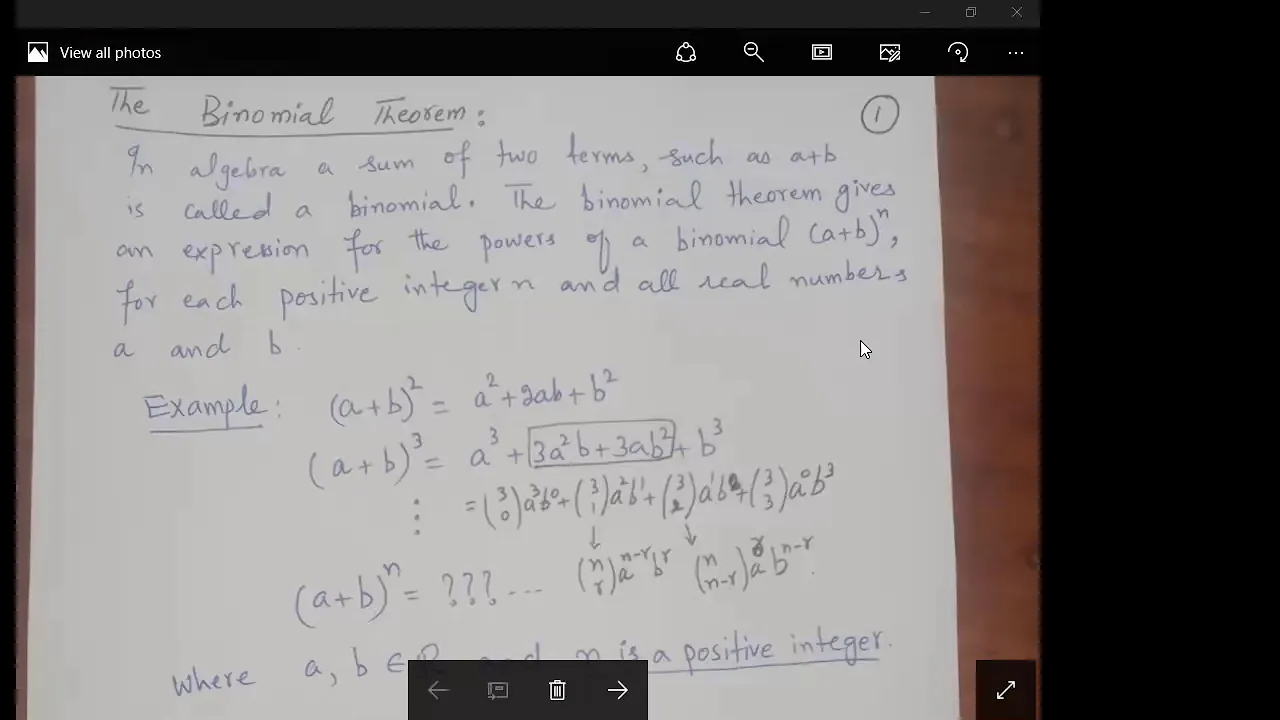 View all photos
The Binomial Theorem:
1
In algebra a sum of two terms, such as a+b
is called a binomial. The binomial theorem gives
an expression for the powers of a binomial (a+b)^n,
for each positive integer n and all real numbers
a and b.
Example: (a+b)^2 = a^2+2ab+b^2
(a+b)^3 = a^3+3a^2b+3ab^2+b^3
⋮ = (3 0)a^3b^0+(3 1)a^2b^1+(3 2)a^1b^2+(3 3)a^0b^3
↓ ↓
(n r)a^{n-r}b^r (n n-r)a^r b^{n-r}.
(a+b)^n = ???...
where a, b ∈ R and n is a positive integer.